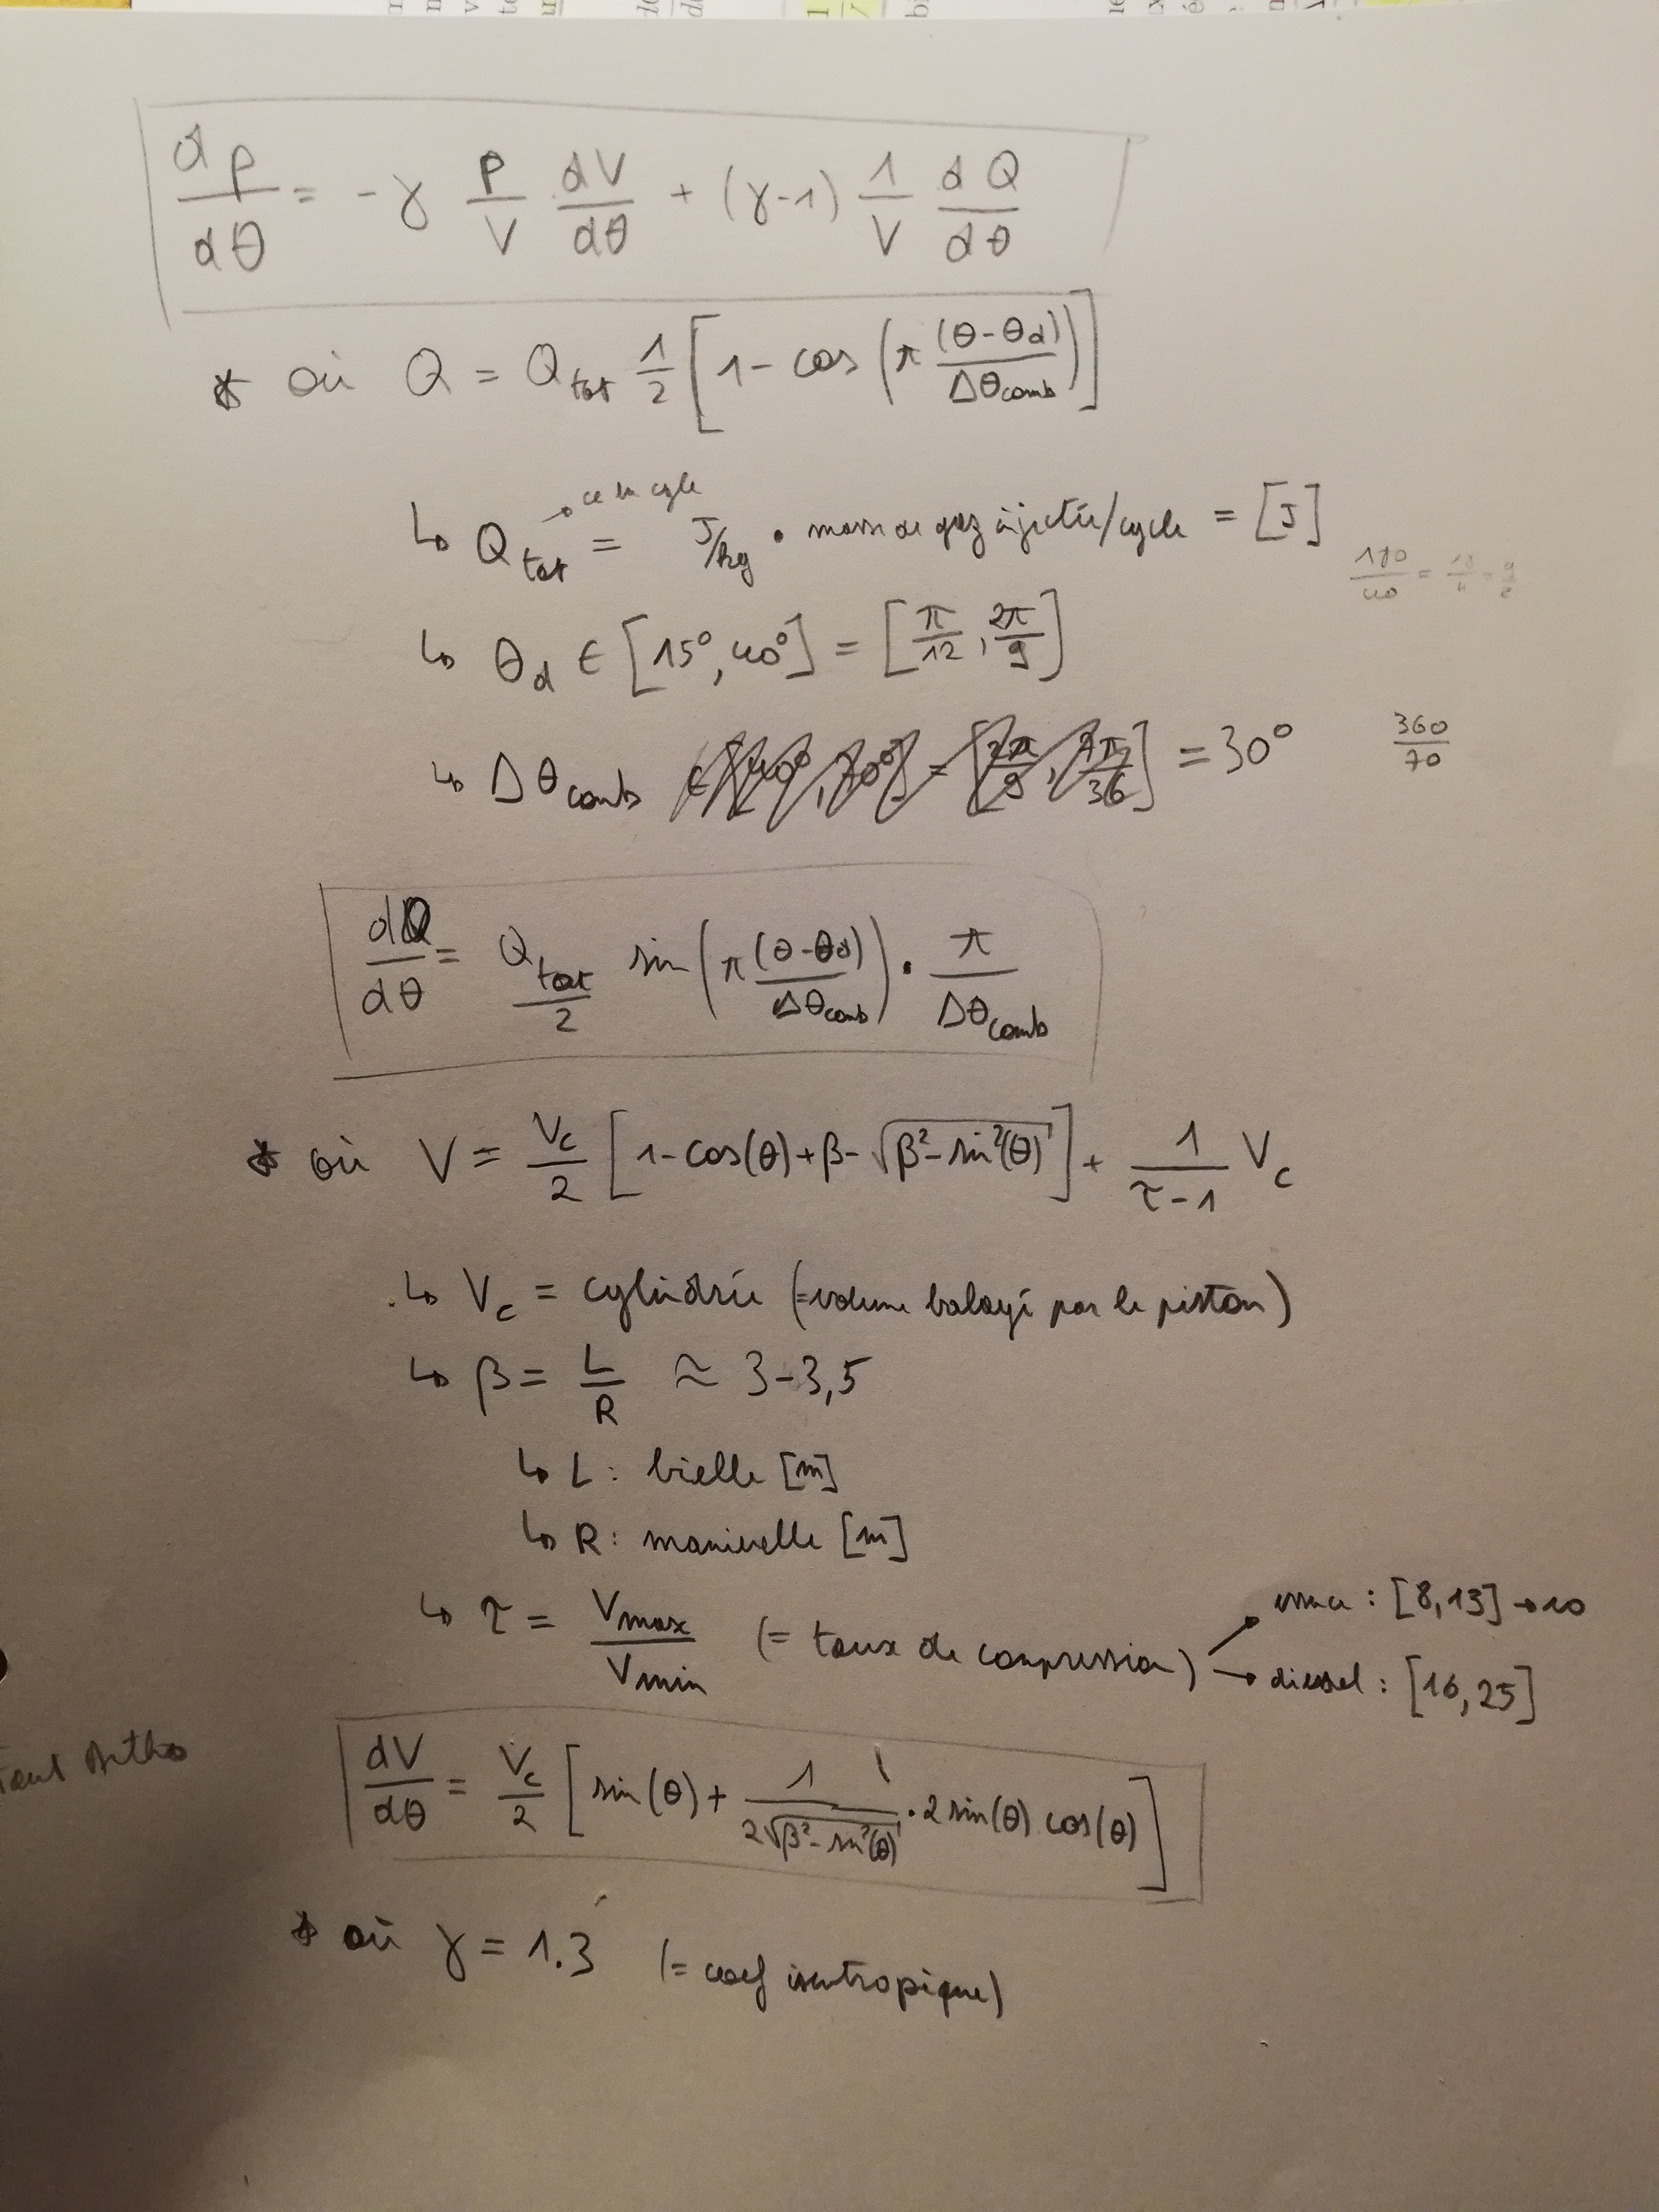 dp/dθ = -γ p/V dV/dθ + (γ-1) 1/V dQ/dθ
* où Q = Q_tot 1/2 [1 - cos(π (θ-θ_d)/Δθ_comb)]
↳ Q_tot = J/kg • masse de gaz injectée/cycle = [J]
180/40 = 18/4 = 9/2
↳ θ_d ∈ [15°, 40°] = [π/12, 2π/9]
↳ Δθ_comb ∈ [40°, 70°] = [2π/9, 7π/36] = 30°
360/70
dQ/dθ = Q_tot/2 sin(π (θ-θ_d)/Δθ_comb) • π/Δθ_comb
* où V = V_c/2 [1 - cos(θ) + β - √(β² - sin²(θ))] + 1/(τ-1) V_c
↳ V_c = cylindrée (= volume balayé par le piston)
↳ β = L/R ≈ 3-3,5
↳ L : bielle [m]
↳ R : manivelle [m]
↳ τ = Vmax/Vmin (= taux de compression)
→ essence : [8,13] → 10
→ diesel : [16,25]
dV/dθ = V_c/2 [sin(θ) + 1/(2√(β² - sin²(θ))) • 2 sin(θ) cos(θ)]
* où γ = 1.3 (= coef isentropique)